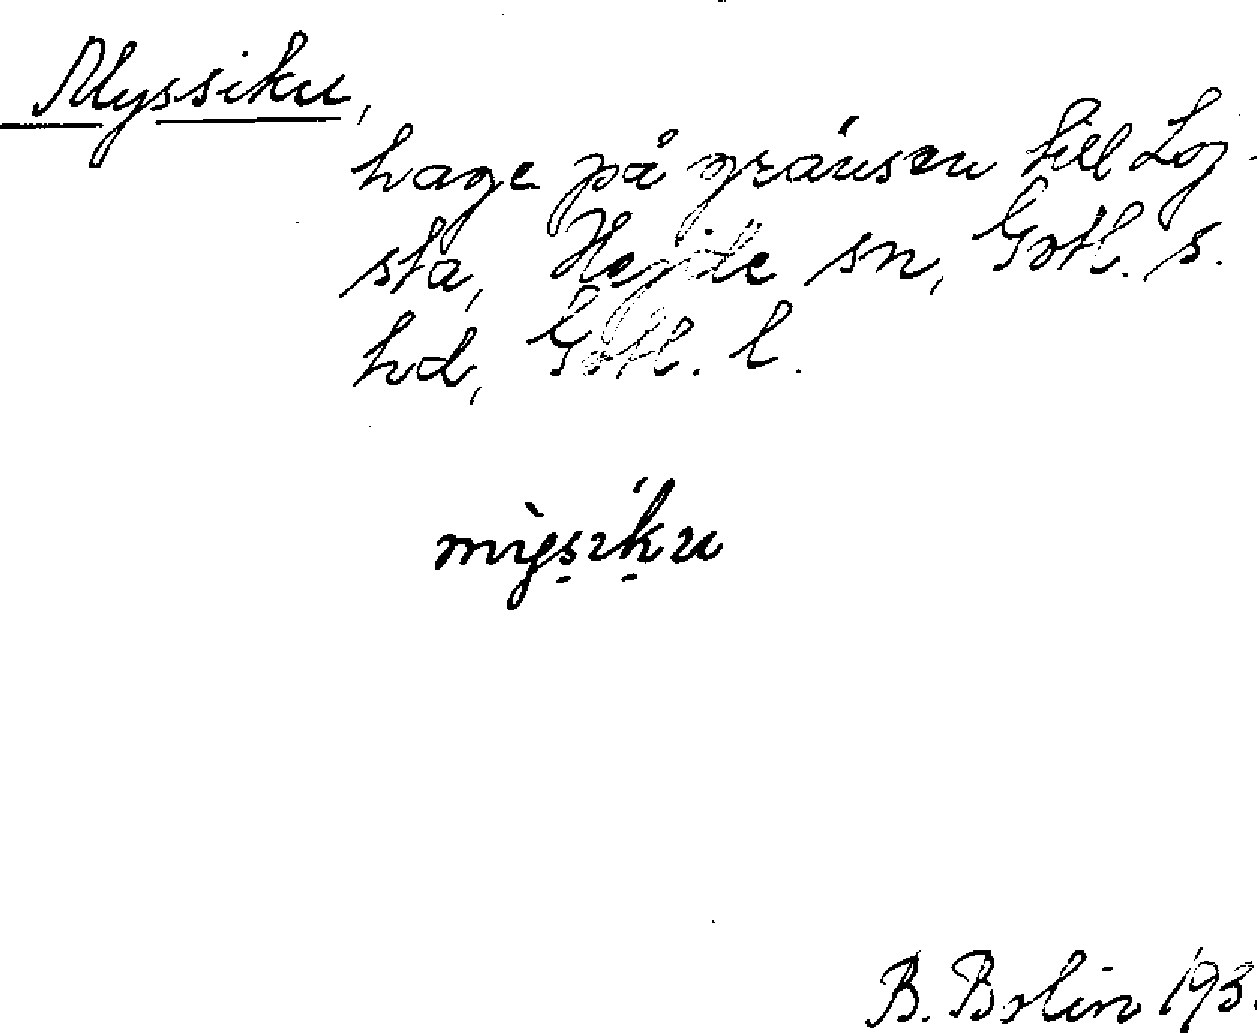 Myssiku,
hage på gränsen till Loj-
sta, Hejde sn, Gotl. s.
hd, Gotl. l.
mỳsíku
B. Bolin 193